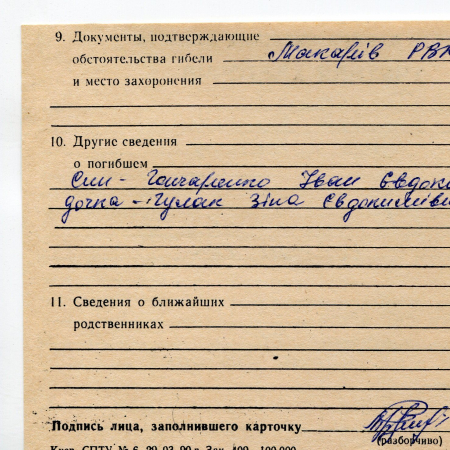 9. Документы, подтверждающие
обстоятельства гибели Макарів РВК
и место захоронения
10. Другие сведения
о погибшем
Син - Гончаренко Іван Євдоки
дочка - Гулак Зіна Євдокимівн
11. Сведения о ближайших
родственниках
Подпись лица, заполнившего карточку
(разборчиво)
Квар. СПТУ № 6 29.03.90 г. Зак. 400 - 100 000